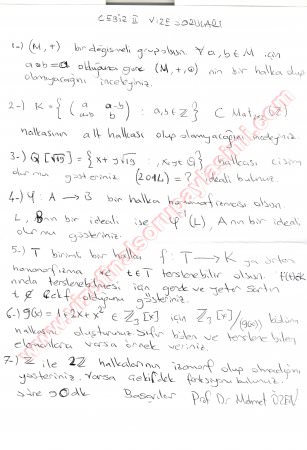 CEBİR II VİZE SORULARI
1-) (M, +) bir değişmeli grup olsun. ∀ a, b ∈ M için
a⊙b = a olduğuna göre (M, +, ⊙) nın bir halka olup
olamayacağını inceleyiniz.
2-) K = { ( a a-b
a-b b ) : a, b ∈ Z } ⊂ Mat₂(Z)
halkasının alt halkası olup olamayacağını inceleyiniz.
3-) Q[√19] = { x+y√19 : x, y ∈ Q } halkası cisim
olur mu gösteriniz. (2014) = ? ideali bulunuz.
4-) φ: A → B bir halka homomorfizması olsun.
L, B nin bir ideali ise φ⁻¹(L), A nın bir ideali
olur mu gösteriniz.
5-) T birimli bir halka f: T → K ya örten
homomorfizma ve t ∈ T terslenebilir olsun. f(t)
nında terslenebilmesi için gerek ve yeter şartın
t ∉ Çekf olduğunu gösteriniz.
6-) g(x) = 1+2x+x² ∈ Z₃[x] için Z₃[x]/(g(x)) bölüm
halkasını oluşturunuz. Sıfır bölen ve terslenebilen
elemanlara varsa örnek veriniz.
7-) Z ile 2Z halkalarının izomorf olup olmadığını
gösteriniz. Varsa çekirdek fonksiyonu bulunuz.
Süre 90dk Başarılar Prof Dr Mehmet ÖZEN
www.matematiksorusayfasi.tr.hmf.com